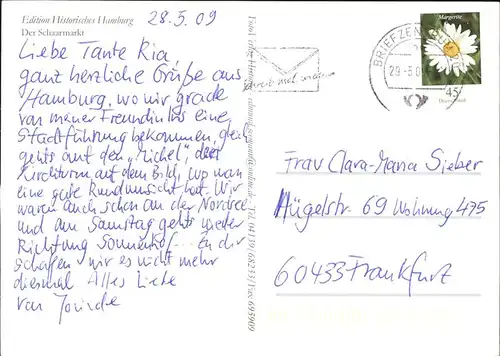 Edition Historisches Hamburg
Der Schaarmarkt
28.5.09
Liebe Tante Ria,
ganz herzliche Grüße aus
Hamburg, wo wir grade
von meiner Freundin Iris eine
Stadtführung bekommen, gleich
gehts auf den „Michel", der
Kirchturm auf dem Bild, wo man
eine gute Rundumsicht hat. Wir
waren auch schon an der Nordsee
und am Samstag gehts wieder
Richtung Sonnenhof... Zu dir
schaffen wir es nicht mehr
diesmal Alles Liebe
von
Schreib mal wieder
BRIEFZENTRUM
Margerite
45
Deutschland
Frau Clara-Maria Sieber
Hügelstr. 69 Wohnung 475
60433 Frankfurt